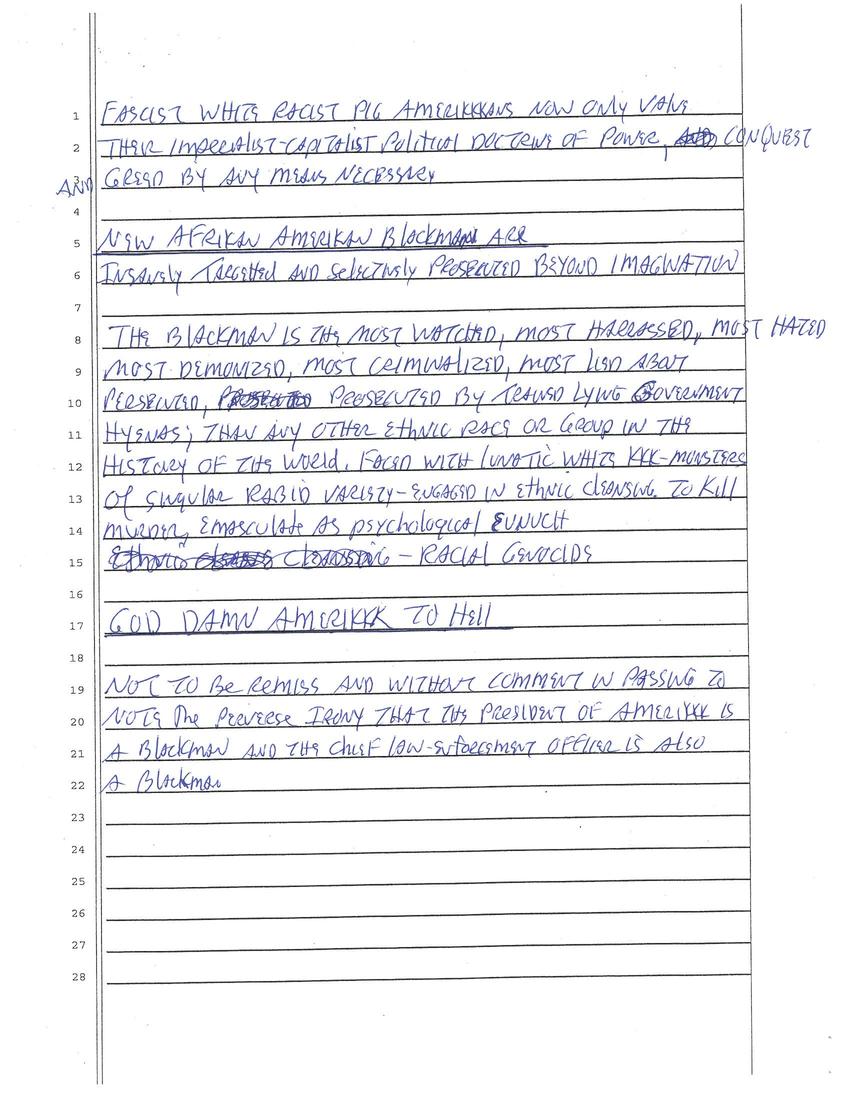 1 FASCIST WHITE RACIST PIG AMERIKKKANS NOW ONLY VALUE
2 THEIR IMPERIALIST-CAPITALIST POLITICAL DOCTRINE OF POWER, CONQUEST
3 AND GREED BY ANY MEANS NECESSARY
4
5 NEW AFRIKAN AMERIKAN BLACKMAN ARE
6 INSANELY TARGETTED AND SELECTIVELY PROSECUTED BEYOND IMAGINATION
7
8 THE BLACKMAN IS THE MOST WATCHED, MOST HARRASSED, MOST HATED
9 MOST DEMONIZED, MOST CRIMINALIZED, MOST LIED ABOUT
10 PERSECUTED, PROSECUTED BY TRAINED LYING GOVERNMENT
11 HYENAS; THAN ANY OTHER ETHNIC RACE OR GROUP IN THE
12 HISTORY OF THE WORLD. FACED WITH LUNATIC WHITE KKK-MONSTERS
13 OF SINGULAR RABID VARIETY-ENGAGED IN ETHNIC CLEANSING TO KILL
14 MURDER, EMASCULATE AS PSYCHOLOGICAL EUNUCH
15 - RACIAL GENOCIDE
16
17 GOD DAMN AMERIKKK TO HELL
18
19 NOT TO BE REMISS AND WITHOUT COMMENT IN PASSING TO
20 NOTE THE PERVERSE IRONY THAT THE PRESIDENT OF AMERIKKK IS
21 A BLACKMAN AND THE CHIEF LAW-ENFORCEMENT OFFICER IS ALSO
22 A BLACKMAN
23
24
25
26
27
28